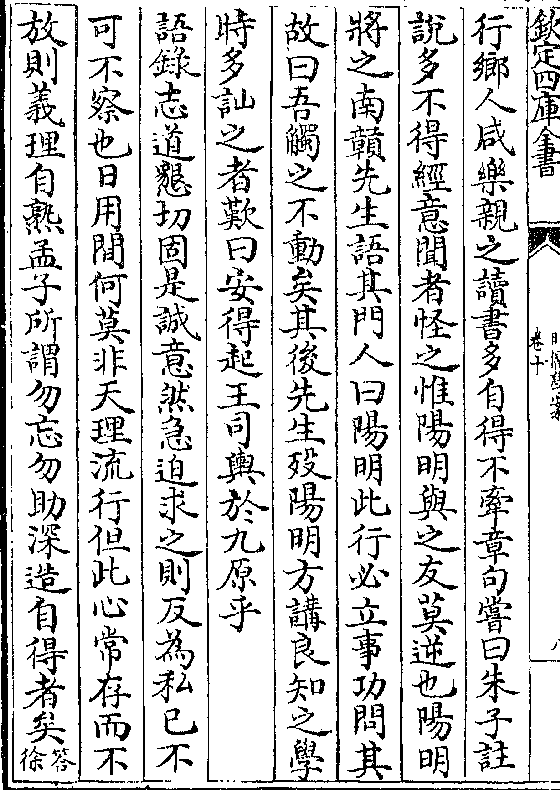 欽定四庫全書
卷十
八
行鄉人咸樂親之讀書多自得不牽章句嘗曰朱子註
說多不得經意聞者怪之惟陽明與之友莫逆也陽明
將之南贛先生語其門人曰陽明此行必立事功問其
故曰吾觸之不動矣其後先生歿陽明方講良知之學
時多訕之者歎曰安得起王司輿於九原乎
語錄志道懇切固是誠意然急迫求之則反為私已不
可不察也日用間何莫非天理流行但此心常存而不
放則義理自熟孟子所謂勿忘勿助深造自得者矣答
徐